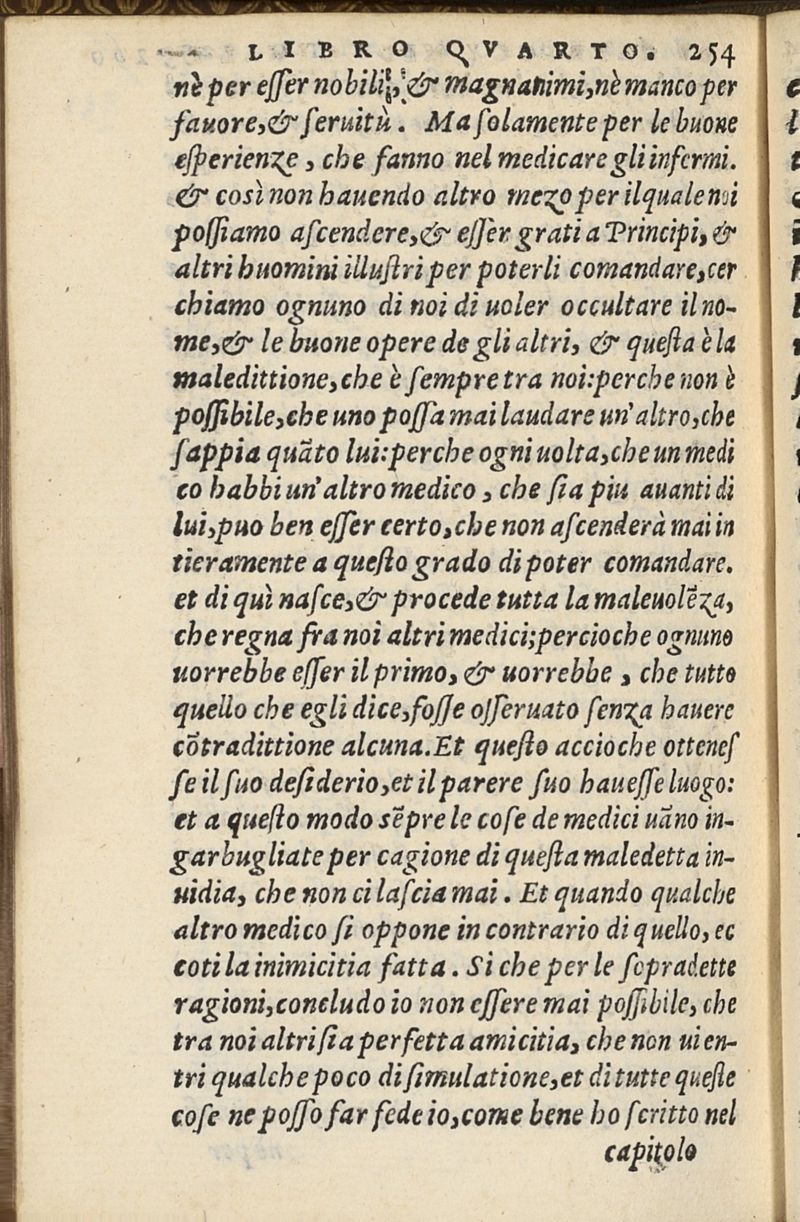 LIBRO QVARTO. 254
nè per eſſer nobili, & magnanimi, nè manco per
fauore, & ſeruitù. Ma ſolamente per le buone
eſperienze, che fanno nel medicare gli infermi.
& così non hauendo altro mezo per ilquale noi
poſſiamo aſcendere, & eſſer grati a Principi, &
altri huomini illuſtri per poterli comandare, cer
chiamo ognuno di noi di uoler occultare il no-
me, & le buone opere de gli altri, & queſta è la
maledittione, che è ſempre tra noi: perche non è
poſſibile, che uno poſſa mai laudare un' altro, che
ſappia quãto lui: perche ogni uolta, che un medi
co habbi un' altro medico, che ſia piu auanti di
lui, puo ben eſſer certo, che non aſcenderà mai in
tieramente a queſto grado di poter comandare.
et di quì naſce, & procede tutta la maleuolẽza,
che regna fra noi altri medici; percioche ognuno
uorrebbe eſſer il primo, & uorrebbe, che tutto
quello che egli dice, foſſe oſſeruato ſenza hauere
cõtradittione alcuna. Et queſto accioche otteneſ
ſe il ſuo deſiderio, et il parere ſuo haueſſe luogo:
et a queſto modo sẽpre le coſe de medici uãno in-
garbugliate per cagione di queſta maledetta in-
uidia, che non ci laſcia mai. Et quando qualche
altro medico ſi oppone in contrario di quello, ec
coti la inimicitia fatta. Si che per le ſopradette
ragioni, concludo io non eſſere mai poſſibile, che
tra noi altri ſia perfetta amicitia, che non ui en-
tri qualche poco di ſimulatione, et di tutte queſte
coſe ne poſſo far fede io, come bene ho ſcritto nel
capitolo